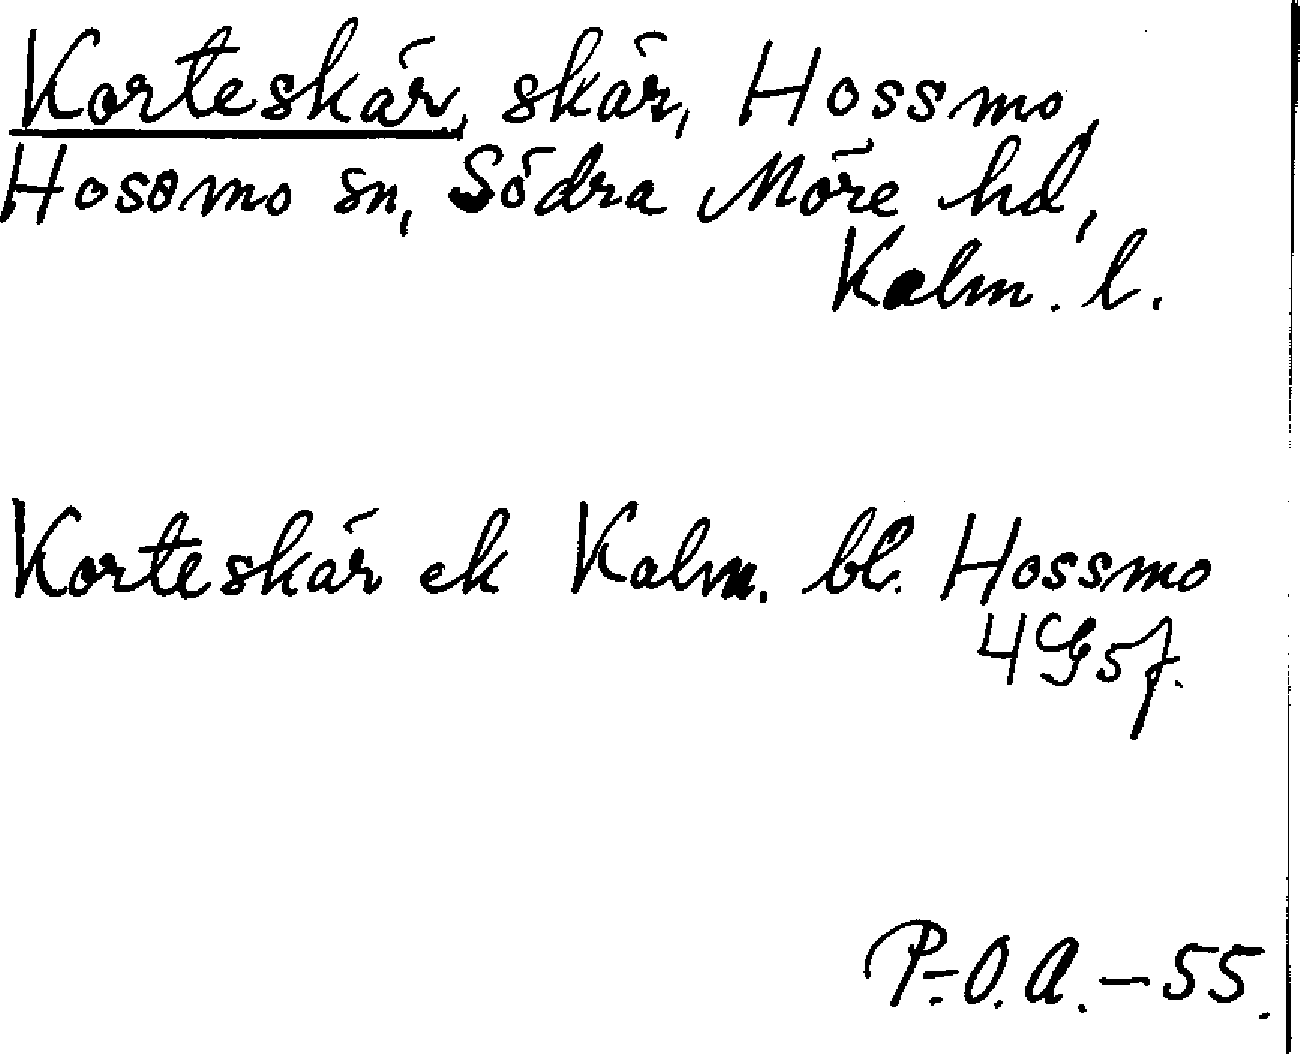 Korteskär, skär, Hossmo,
Hossmo sn, Södra Möre hd,
Kalm. l.
Korteskär ek Kalm. bl. Hossmo
4G5f.
P.-O.A.–55.